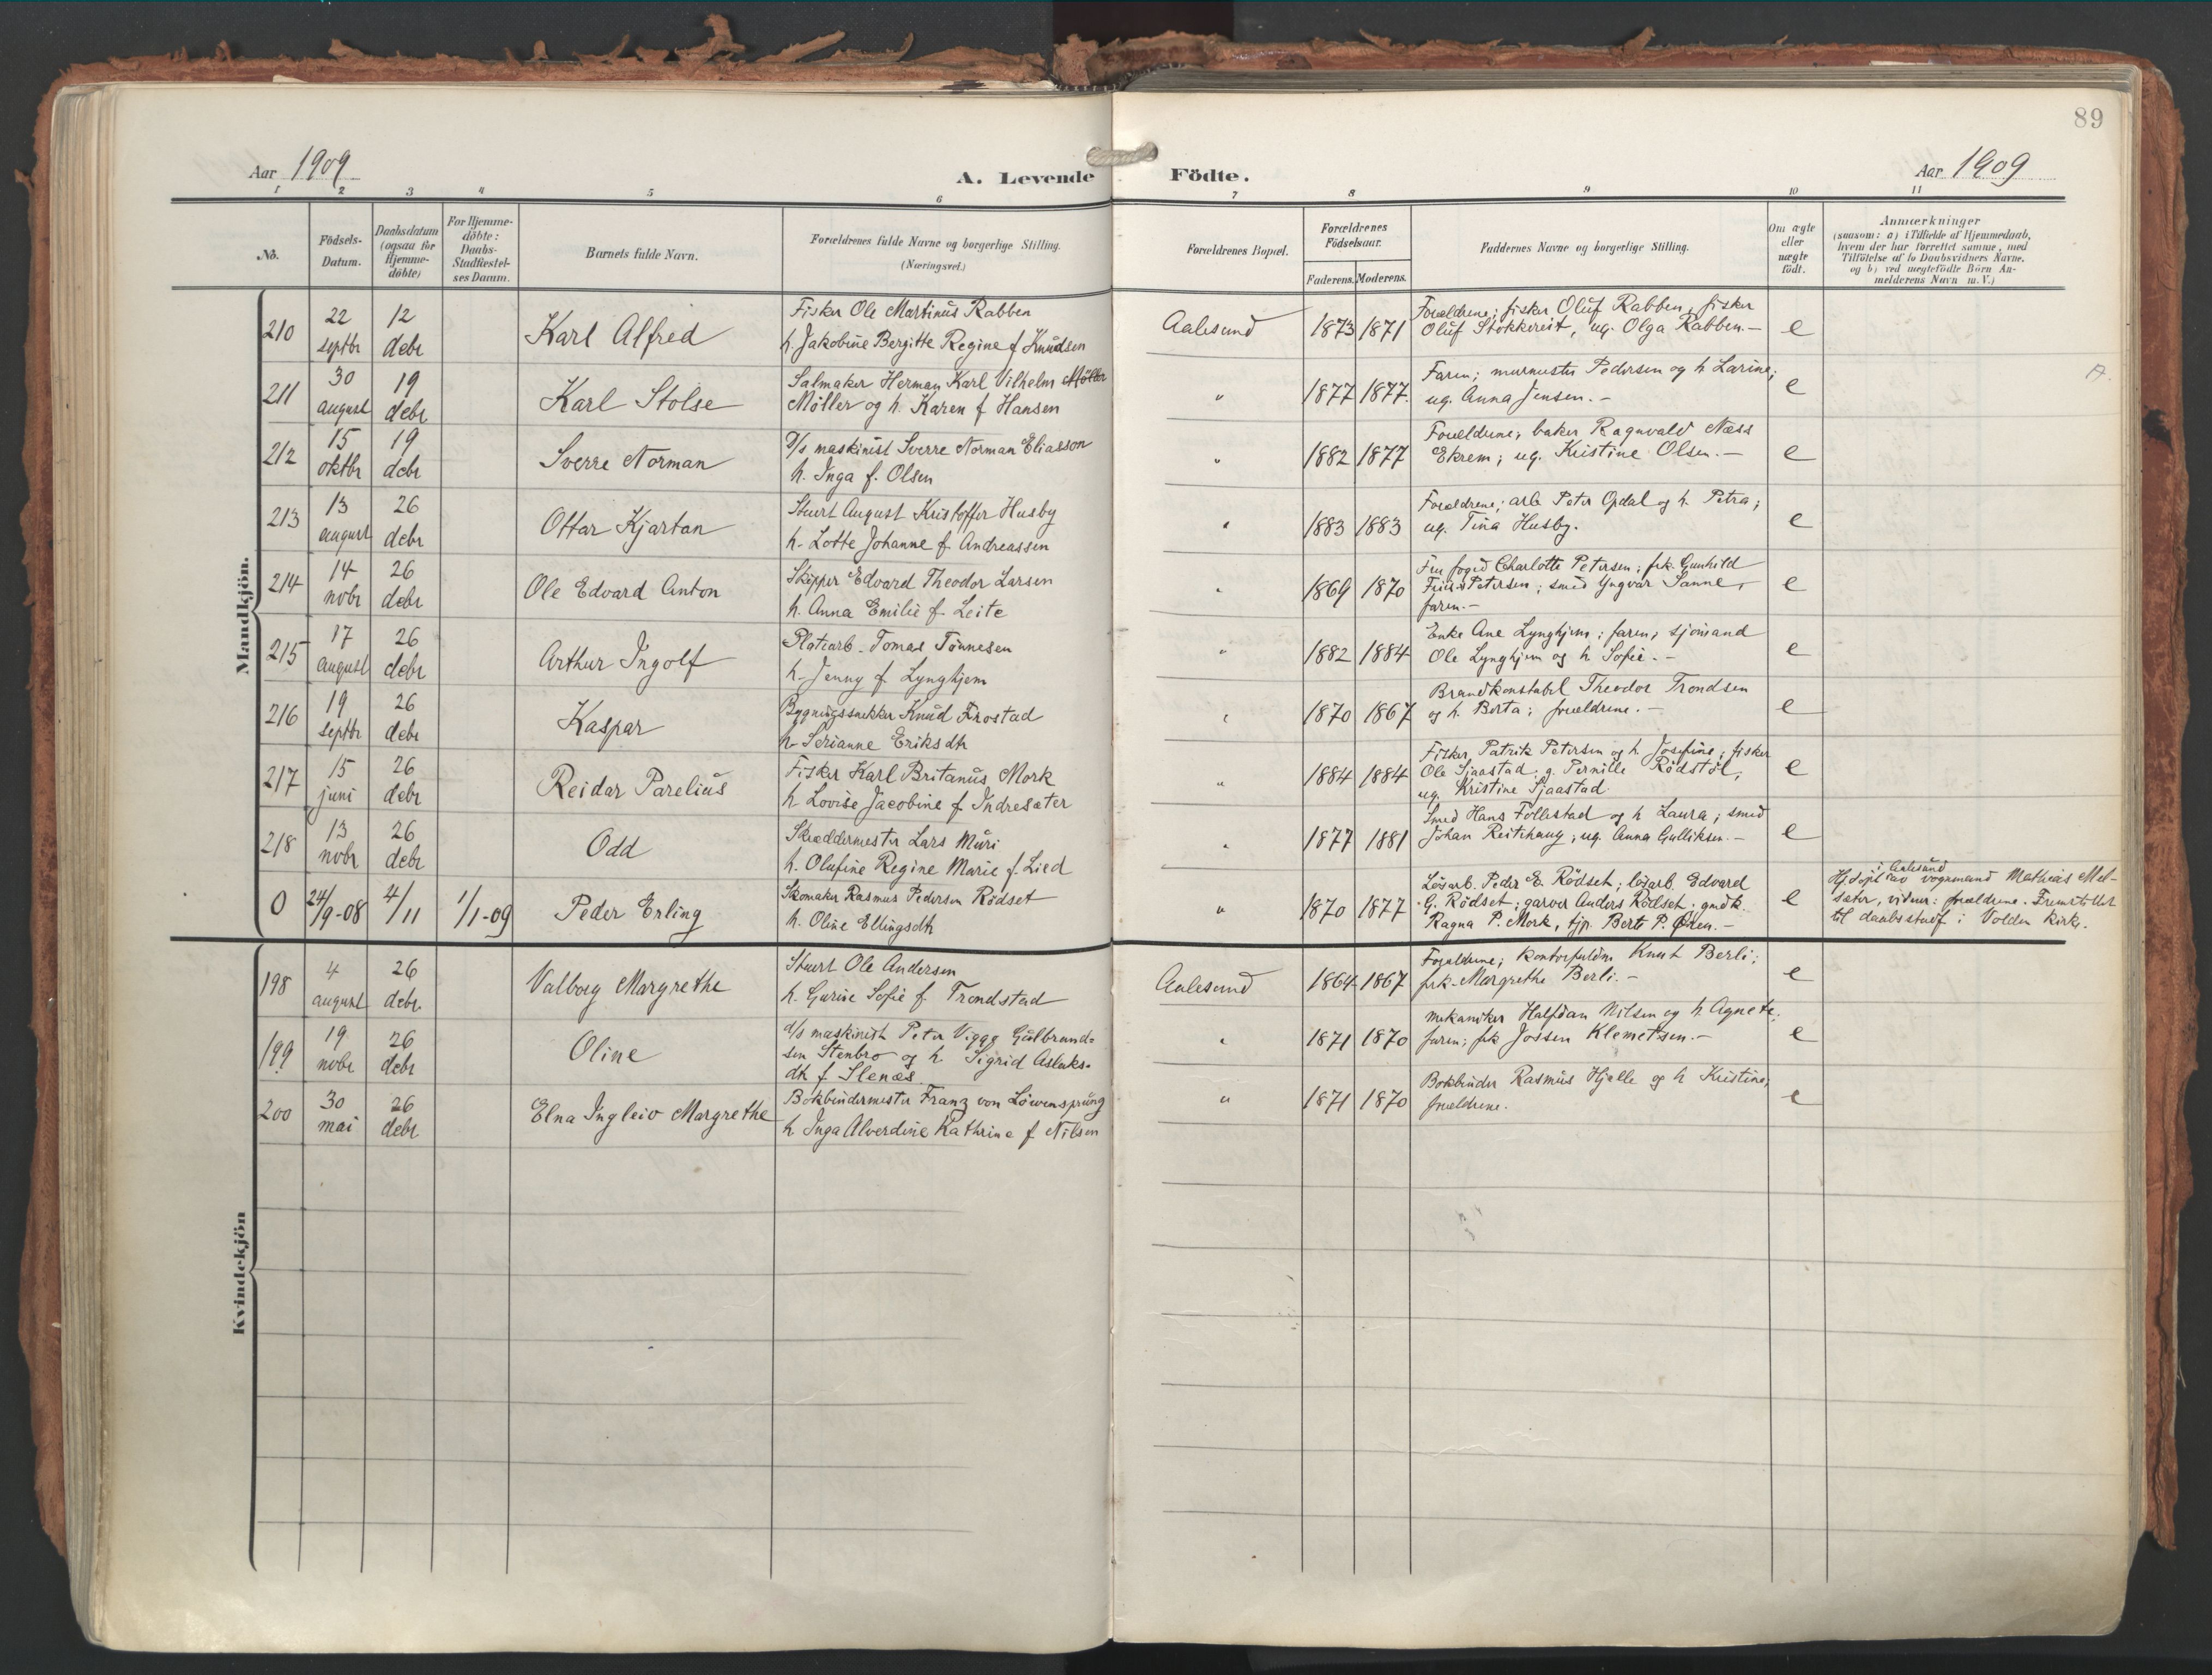 89
Aar 1909
A. Levende Födte.
Aar 1909
1 2 3 4 5 6 7 8 9 10 11
No.
Födsels-
Datum.
Daabsdatum
(ogsaa for
Hjemme-
döbte)
For Hjemme-
döbte:
Daabs-
Stadfæstel-
ses Datum.
Barnets fulde Navn.
Forældrenes fulde Navne og borgerlige Stilling.
(Næringsvei.)
Forældrenes Bopæl.
Forældrenes
Födselsaar.
Faderens. Moderens.
Faddernes Navne og borgerlige Stilling.
Om ægte
eller
uægte
födt.
Anmærkninger
(saasom: a) i Tilfælde af Hjemmedaab,
hvem der har forrettet samme, med
Tilföielse af to Daabsvidners Navne,
og b) ved uægtefödte Börn An-
melderens Navn m.V.)
Mandkjön.
210
22
septbr
12
debr
Karl Alfred
Fisker Ole Martinus Rabben
h. Jakobine Bergitte Regine f. Knudsen
Aalesund
1873 1871
Forældrene; fisker Oluf Rabben; fisker
Oluf Stokkereit, ug. Olga Rabben. -
e
211
30
august
19
debr
Karl Stolse
Salmaker Herman Karl Vilhelm Möller
Möller og h. Karen f. Hansen
"
1877 1877.
Faren; murmester Pedersen og h Larine;
ug. Anna Jensen. -
e
212
15
oktbr
19
debr
Sverre Norman
D/s maskinist Sverre Norman Eliasson
h. Inga f. Olsen
"
1882 1877
Forældrene; baker Ragnvald Næss
Ekrem; ug. Kristine Olsen. -
e
213
13
august
26
debr
Ottar Kjartan
Stuert August Kristoffer Husby
h. Lotte Johanne f. Andreassen
"
1883 1883
Forældrene; arb. Peter Opdal og h. Petra;
ug. Tina Husby.
e
214
14
nobr
26
debr
Ole Edvard Anton
Skipper Edvard Theodor Larsen
h. Anna Emilie f. Leite
"
1869 1870
Fru foged Charlotte Petersen; frk. Gunhild
Petersen; smed Yngvar Sanne,
faren. -
e
215
17
august
26
debr
Arthur Ingolf
Platearb. Tomas Tönnesen
h. Jenny f. Lynghjem
"
1882 1884
Enke Ane Lynghjem; faren; sjömand
Ole Lynghjem og h Sofie. -
e
216
19
septbr
26
debr
Kaspar
Bygningssnekker Knud Frostad
h. Serianne Eriksdtr
"
1870 1867
Brandkonstabel Theodor Trondsen
og h. Berta; forældrene. -
e
217
15
juni
26
debr
Reidar Parelius
Fisker Karl Britanus Mork
h. Lovise Jacobine f Indresæter
"
1884 1884
Fisker Patrik Petersen og h Josefine; fisker
Ole Sjaastad; g. Pernille Rödstöl,
ug. Kristine Sjaastad
e
218
13
nobr
26
debr
Odd
Skræddermester Lars Muri
h. Olufine Regine Marie f. Lied
"
1877 1881
Smed Hans Follestad og h Laura; smed
Johan Reitehaug; ug. Anna Gulliksen. -
e
0
24/9-08
4/11
1/1-09
Peder Erling
Skomaker Rasmus Pedersen Rödset
h. Oline Ellingsdtr
"
1870 1877
Lösarb. Peder E. Rödset; lösarb. Edvard
G. Rödset; garver Anders Rödset; gmdk.
Ragna P. Mork, tjp. Berte P. Ören. -
e
i Aalesund
Hj.döpt av vognmand Mathias Mel-
sæter, vidner: forældrene. Fremstillet
til daabsstadf. i Volden kirke.
Kvindekjön
198
4
august
26
debr.
Valborg Margrethe
Stuert Ole Andersen
h. Gurine Sofie f. Trondstad
Aalesund
1864 1867
Forældrene; kontorfuldm Knut Berli;
frk. Margrethe Berli. -
e
199
19
nobr
26
debr
Oline
d/s maskinist Peter Viggo Gulbrand-
sen Stenbro og h Sigrid Aslaks-
dtr f. Slenæs
"
1871 1870
Mekaniker Halfdan Nilsen og h. Agnete;
faren; frk Jossen Klemetsen. -
e
200
30
mai
26
debr
Elna Ingleiv Margrethe
Bokbindermester Franz von Löwensprung
h. Inga Alverdine Kathrine f Nilsen
"
1871 1870
Bokbinder Rasmus Hjelle og h Kristine,
forældrene.
e